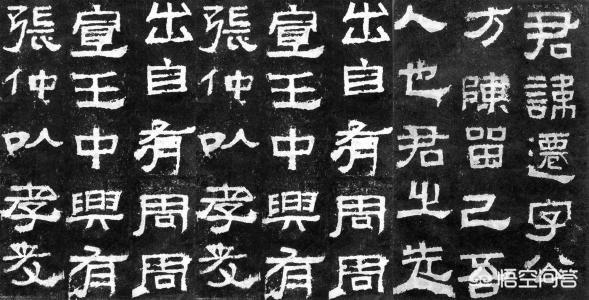 君諱遷字公
方陳留己吾
人也君之先
出自有周周
宣王中興有
張仲以孝友
出自有周周
宣王中興有
張仲以孝友
悟空问答